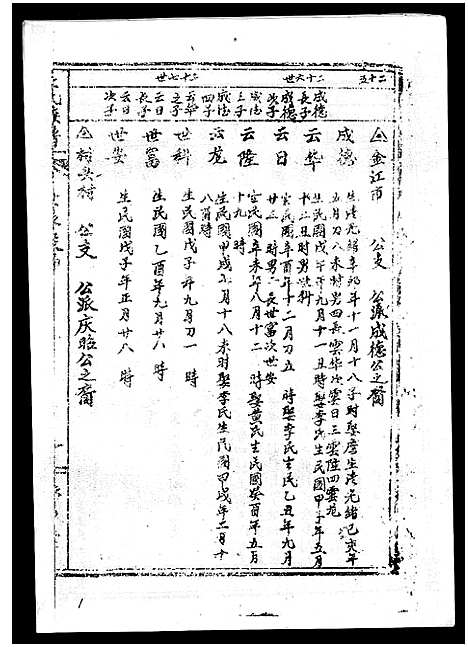 二十五
二十六世
二十七世
金江市 公支 公派成德公之裔
成德 生清光緒辛卯年十一月十八子時娶詹生清光緒己亥年
五月初八未時男四長雲华次雲日三雲陸四雲龙
成德長子 云华 生民國戊午年九月十一丑時娶李氏生民國甲子年五月
十二丑時男世科
成德次子 云日 生民國辛酉年十二月初五 時娶李氏生民乙丑年九月
廿三 時男二長世富次世安
成德三子 云陸 生民國辛未年八月十二 時娶黄氏生民國癸酉年五月
十九 時
成德四子 云龙 生民國甲戌年 月十八未時娶李氏生民國甲戌年二月十
八酉時
云华之子 世科 生民國戊子年九月初一 時
云日長子 世富 生民國乙酉年九月廿八 時
云日次子 世安 生民國戊子年正月廿八 時
村 村 公支 公派庆 公之裔